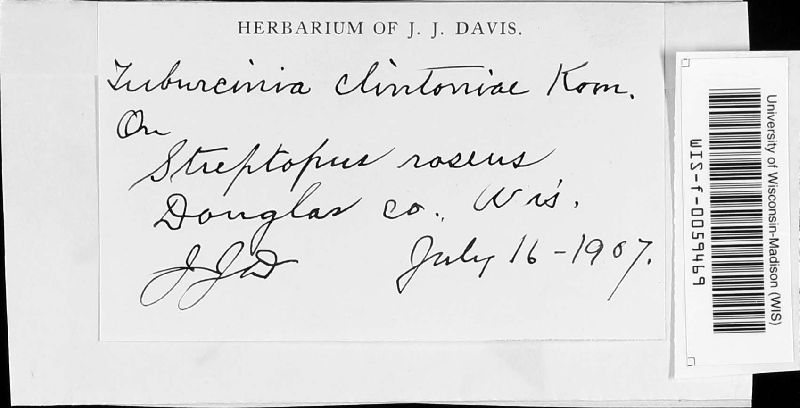 HERBARIUM OF J. J. DAVIS.
Tuburcinia clintoniae Kom.
On
Streptopus roseus
Douglas co., Wis.
JJD July 16-1907.
University of Wisconsin-Madison (WIS)
WIS-f-0059469